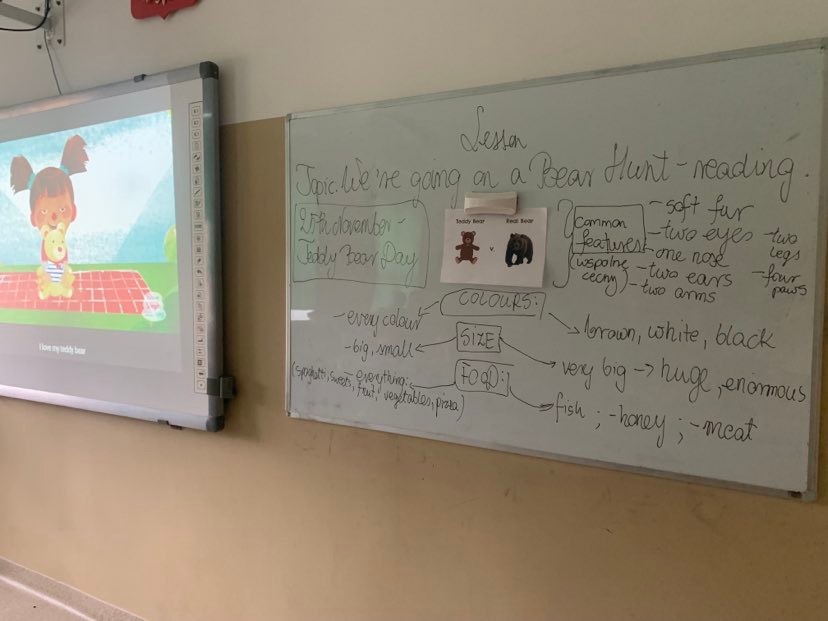 Lesson
Topic: We're going on a Bear Hunt - reading.
25th November -
Teddy Bear Day
Teddy Bear
v.
Real Bear
Common
features
(wspólne
cechy)
- soft fur
- two eyes
- one nose
- two ears
- two arms
- two
legs
- four
paws
COLOURS:
- every colour
brown, white, black
SIZE
- big, small
very big → huge, enormous
FOOD:
- everything:
(spaghetti, sweets, fruit, vegetables, pizza)
fish ; - honey ; - meat
I love my teddy bear